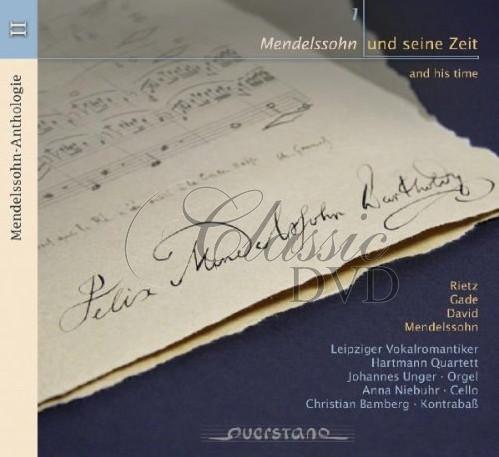 II
Mendelssohn-Anthologie
1
Mendelssohn und seine Zeit
and his time
Felix Mendelssohn Bartholdy
Classic
DVD
Rietz
Gade
David
Mendelssohn
Leipziger Vokalromantiker
Hartmann Quartett
Johannes Unger · Orgel
Anna Niebuhr · Cello
Christian Bamberg · Kontrabaß
querstand